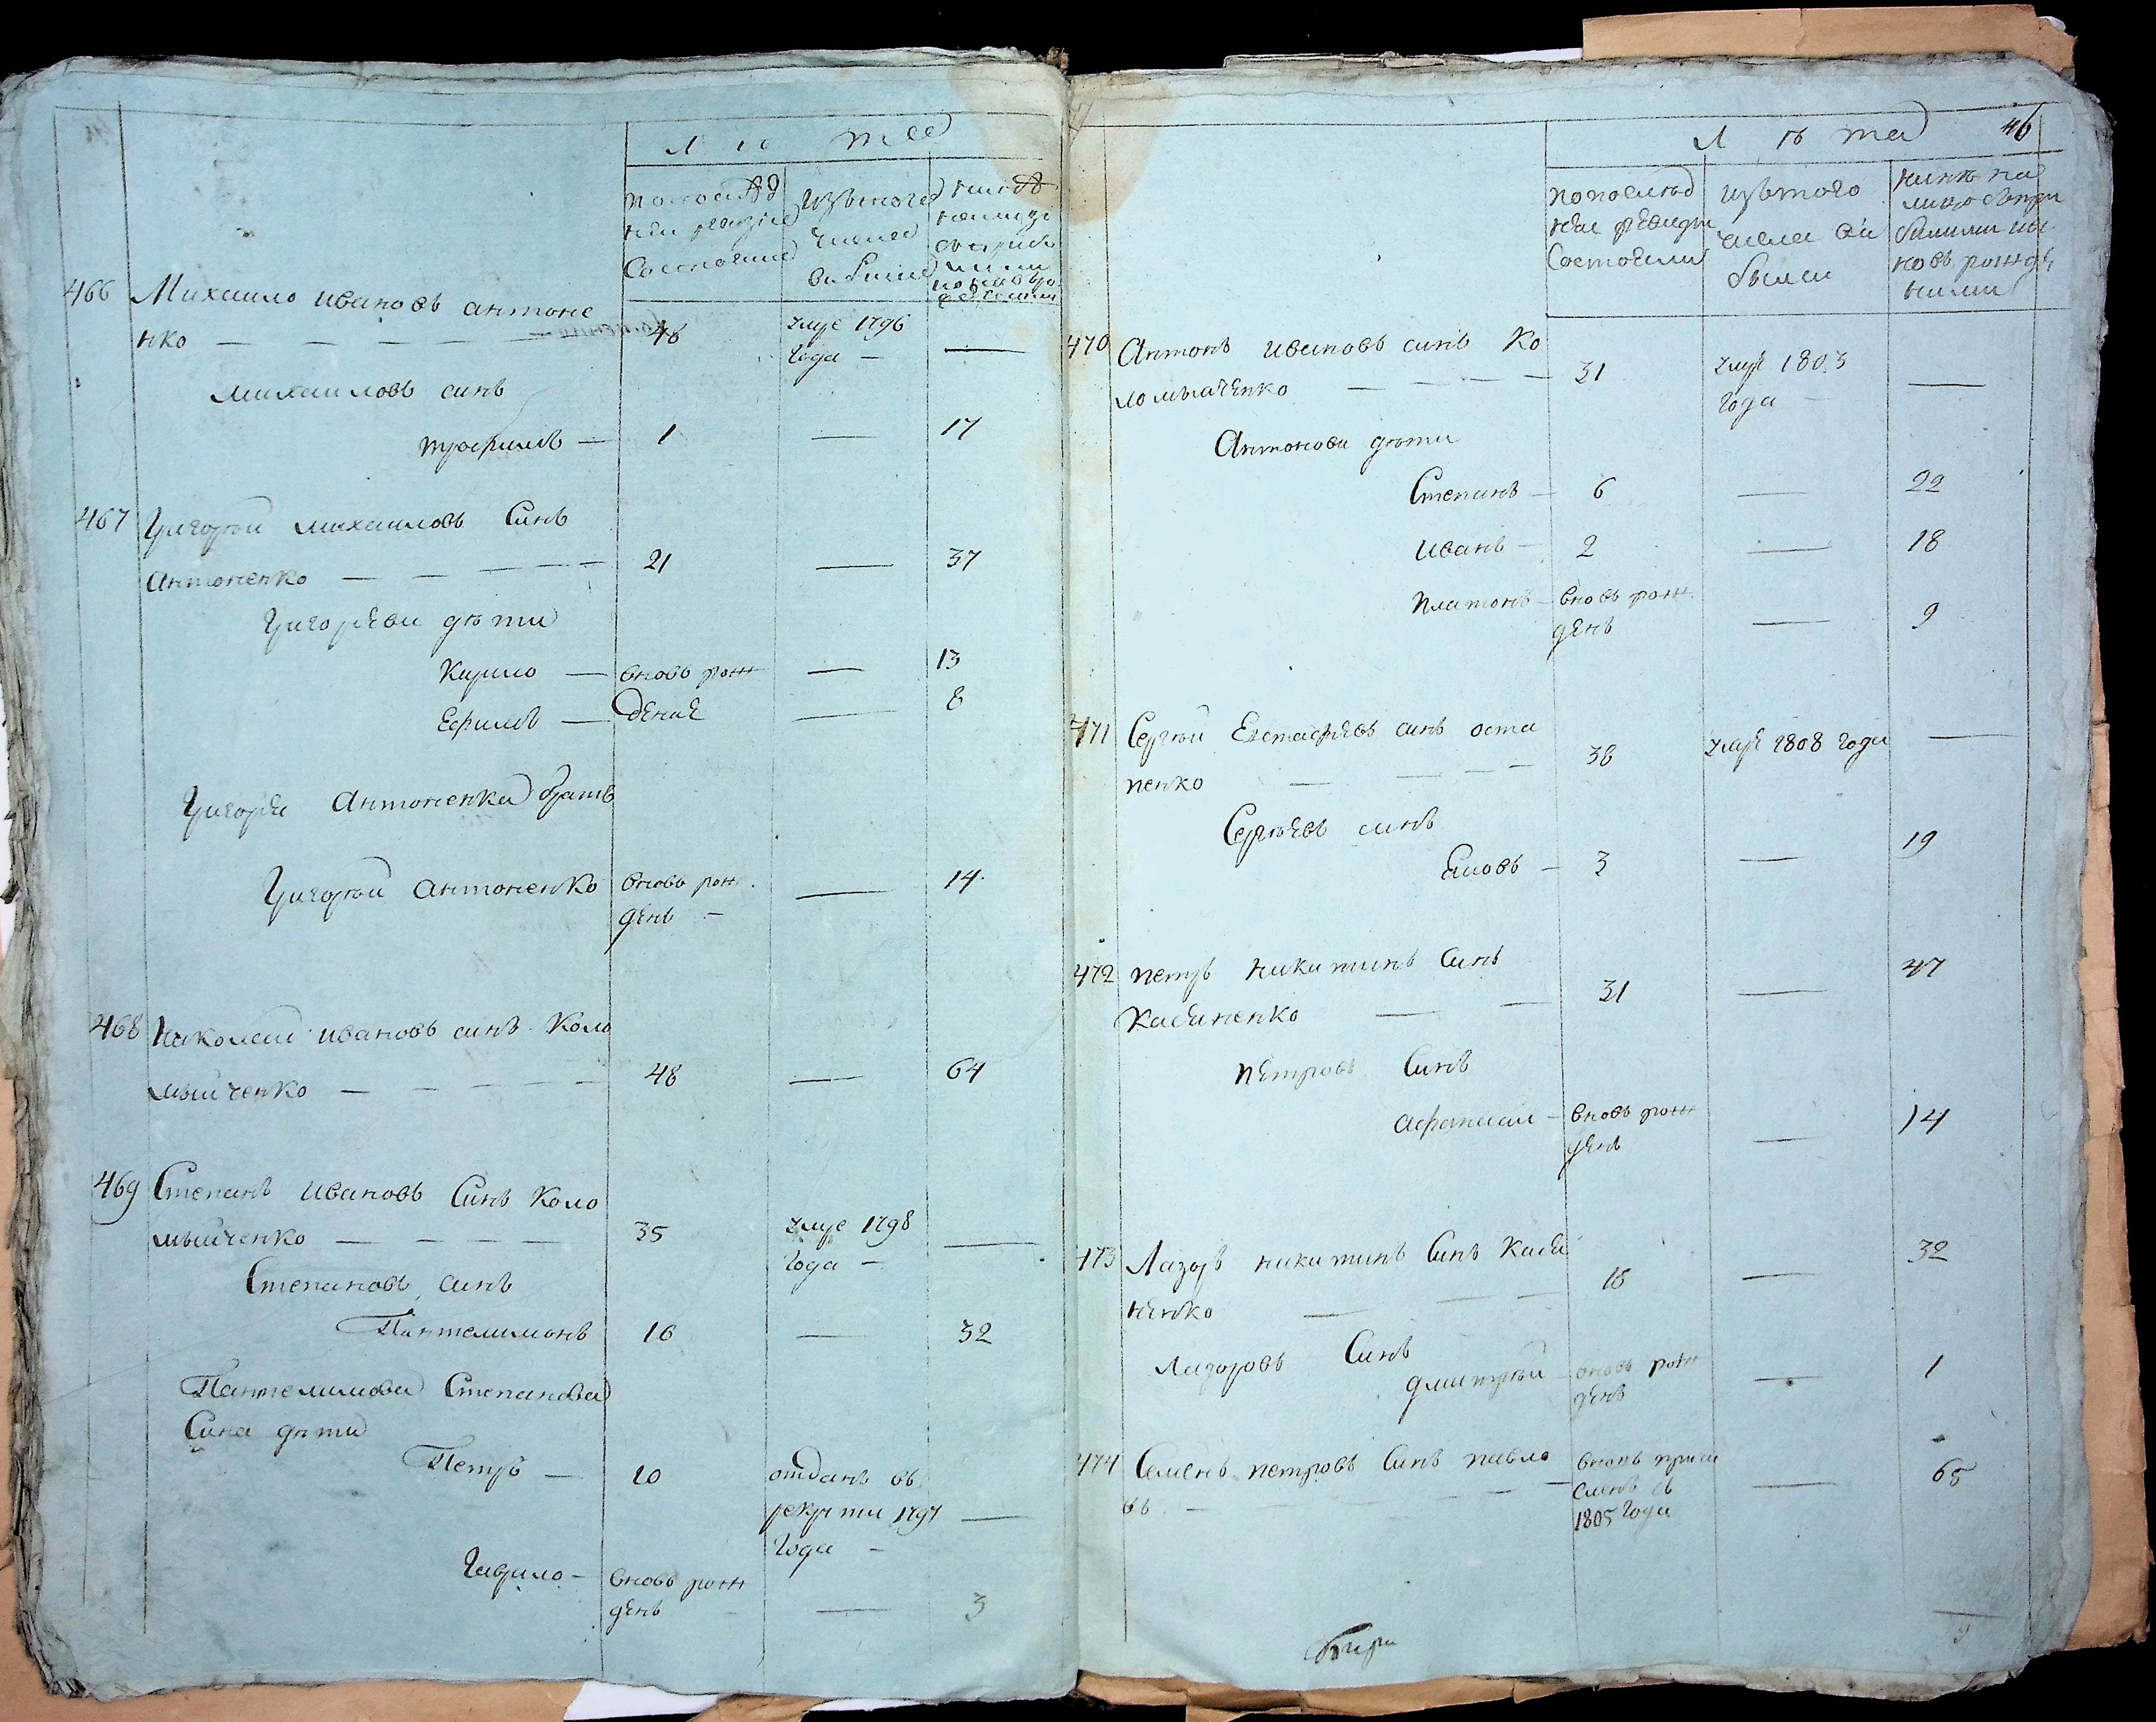 Л ѣ та
попослѣд ней ревизіи состояли
изътого числа выбыли
нинѣ налицо
466 Михаило ивановъ антоне
нко — 48 умре 1796 года — —
михаиловъ синъ
трофимъ — 1 — 17
467 Григорій михаиловъ Синъ
Антоненко — 21 — 37
Григорѣви дѣти
Кирило — вновь рож — 13
Ефимъ — дение — 8
Григорія Антоненка братъ
Григорій антоненко вновь рож день — — 14
468 Николай ивановъ синъ Коло
мыйченко — 48 — 64
469 Степанъ ивановъ Синъ Коло
мыйченко — 35 умре 1798 года — —
Степановъ синъ
Пантелимонъ 16 — 32
Пантелимона Степанова
Сина дѣти
Петръ — 10 отданъ въ рекрути 1797 года — —
Гаврило — вновь рож день — 3
Л ѣ та 46
попослѣд ней ревизіи Состояли
изътого числа выбыли
нинѣ на лицо
470 Антонъ ивановъ синъ Ко
ломыаченко — 31 умре 1803 года — —
Антонови дѣти
Степанъ — 6 — 22
иванъ — 2 — 18
платонъ — вновь рож день — 9
471 Сергій Евстафѣевъ синъ оста
пенко — 38 умре 1808 года —
Сергѣевъ синъ
3 — 19
472 петръ никитинъ Синъ
31 — 47
петровъ Синъ
афанасій — вновь рож день — 14
473 Лазоръ никитинъ Синъ
ненко — 15 — 32
Лазоровъ Синъ
дмитрій вновь рож день — 1
474 Семенъ петровъ Синъ павло
въ — вновь причи сленъ съ 1805 года — 65